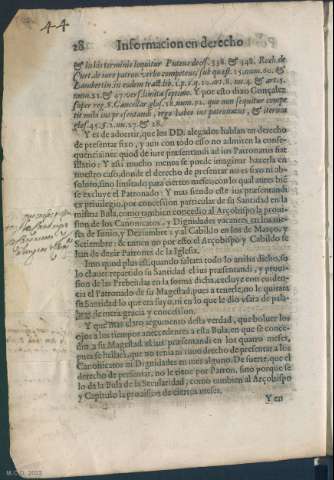 44
28 Informacion en derecho
& in his terminis loquitur Puteus decis. 338. & 348. Roch. de
Curt. de iure patron. verbo competens,
Lambertin. in eodem tract. lib. 1. p.
& 27. Y por esto dixo Gonçalez
super reg. 8. Cancellar. glos. 18. num. 72. que non sequitur compe
tit mihi ius præsentandi, ergo habeo ius patronatus, & iterum
glos. 45. §. 2. nu. 27. & 28.
Y es de aduertir, que los DD. alegados hablan en derecho
de presentar fixo, y aun con todo esso no admiten la conse-
quencia: nec quod de iure præsentandi ad ius Patronatus fit
illatio: Y assi mucho menos se puede imaginar hazerla en
nuestro caso, donde el derecho de presentar no es fixo ni ab-
soluto, sino limitado para ciertos meses, con lo qual antes biē
se excluye el Patronado: Y mas siendo este ius præsentandi
ex priuilegio, por concession particular de su Santidad en la
misma Bula, como tambien concedio al Arçobispo la proui-
sion de los Canonicatos, y Dignidades vacantes, en los me-
ses de Iunio, y Deziembre: y al Cabildo en los de Março, y
Setiembre: & tamen no por esto el Arçobispo y Cabildo se
han de dezir Patrones de la Iglesia.
Imo quod plus est, quando faltara todo lo arriba dicho, so-
lo el auer repartido su Santidad el ius præsentandi, y prouis-
sion de las Prebendas en la forma dicha, excluye con euiden-
cia el Patronado de su Magestad, pues a tenerle, no le quitara
su Santidad lo que era suyo, ni en lo que le dio vsara de pala-
bras de mera gracia y concession.
Y que mas claro argumento desta verdad, que boluer los
ojos a los tiempos antecedentes a esta Bula, en que se conce-
dio a su Magestad el ius præsentandi en los quatro meses,
pues se hallarà, que no tenia ni tuuo derecho de presentar a los
Canonicatos ni Dignidades en mes alguno. De suerte, que el
derecho de presentar, no le tiene por Patron, sino porque se
lo dè la Bula de la Secularidad, como tambien al Arçobispo
y Capitulo la prouision de ciertos meses.
Y en
M.C.D. 2022